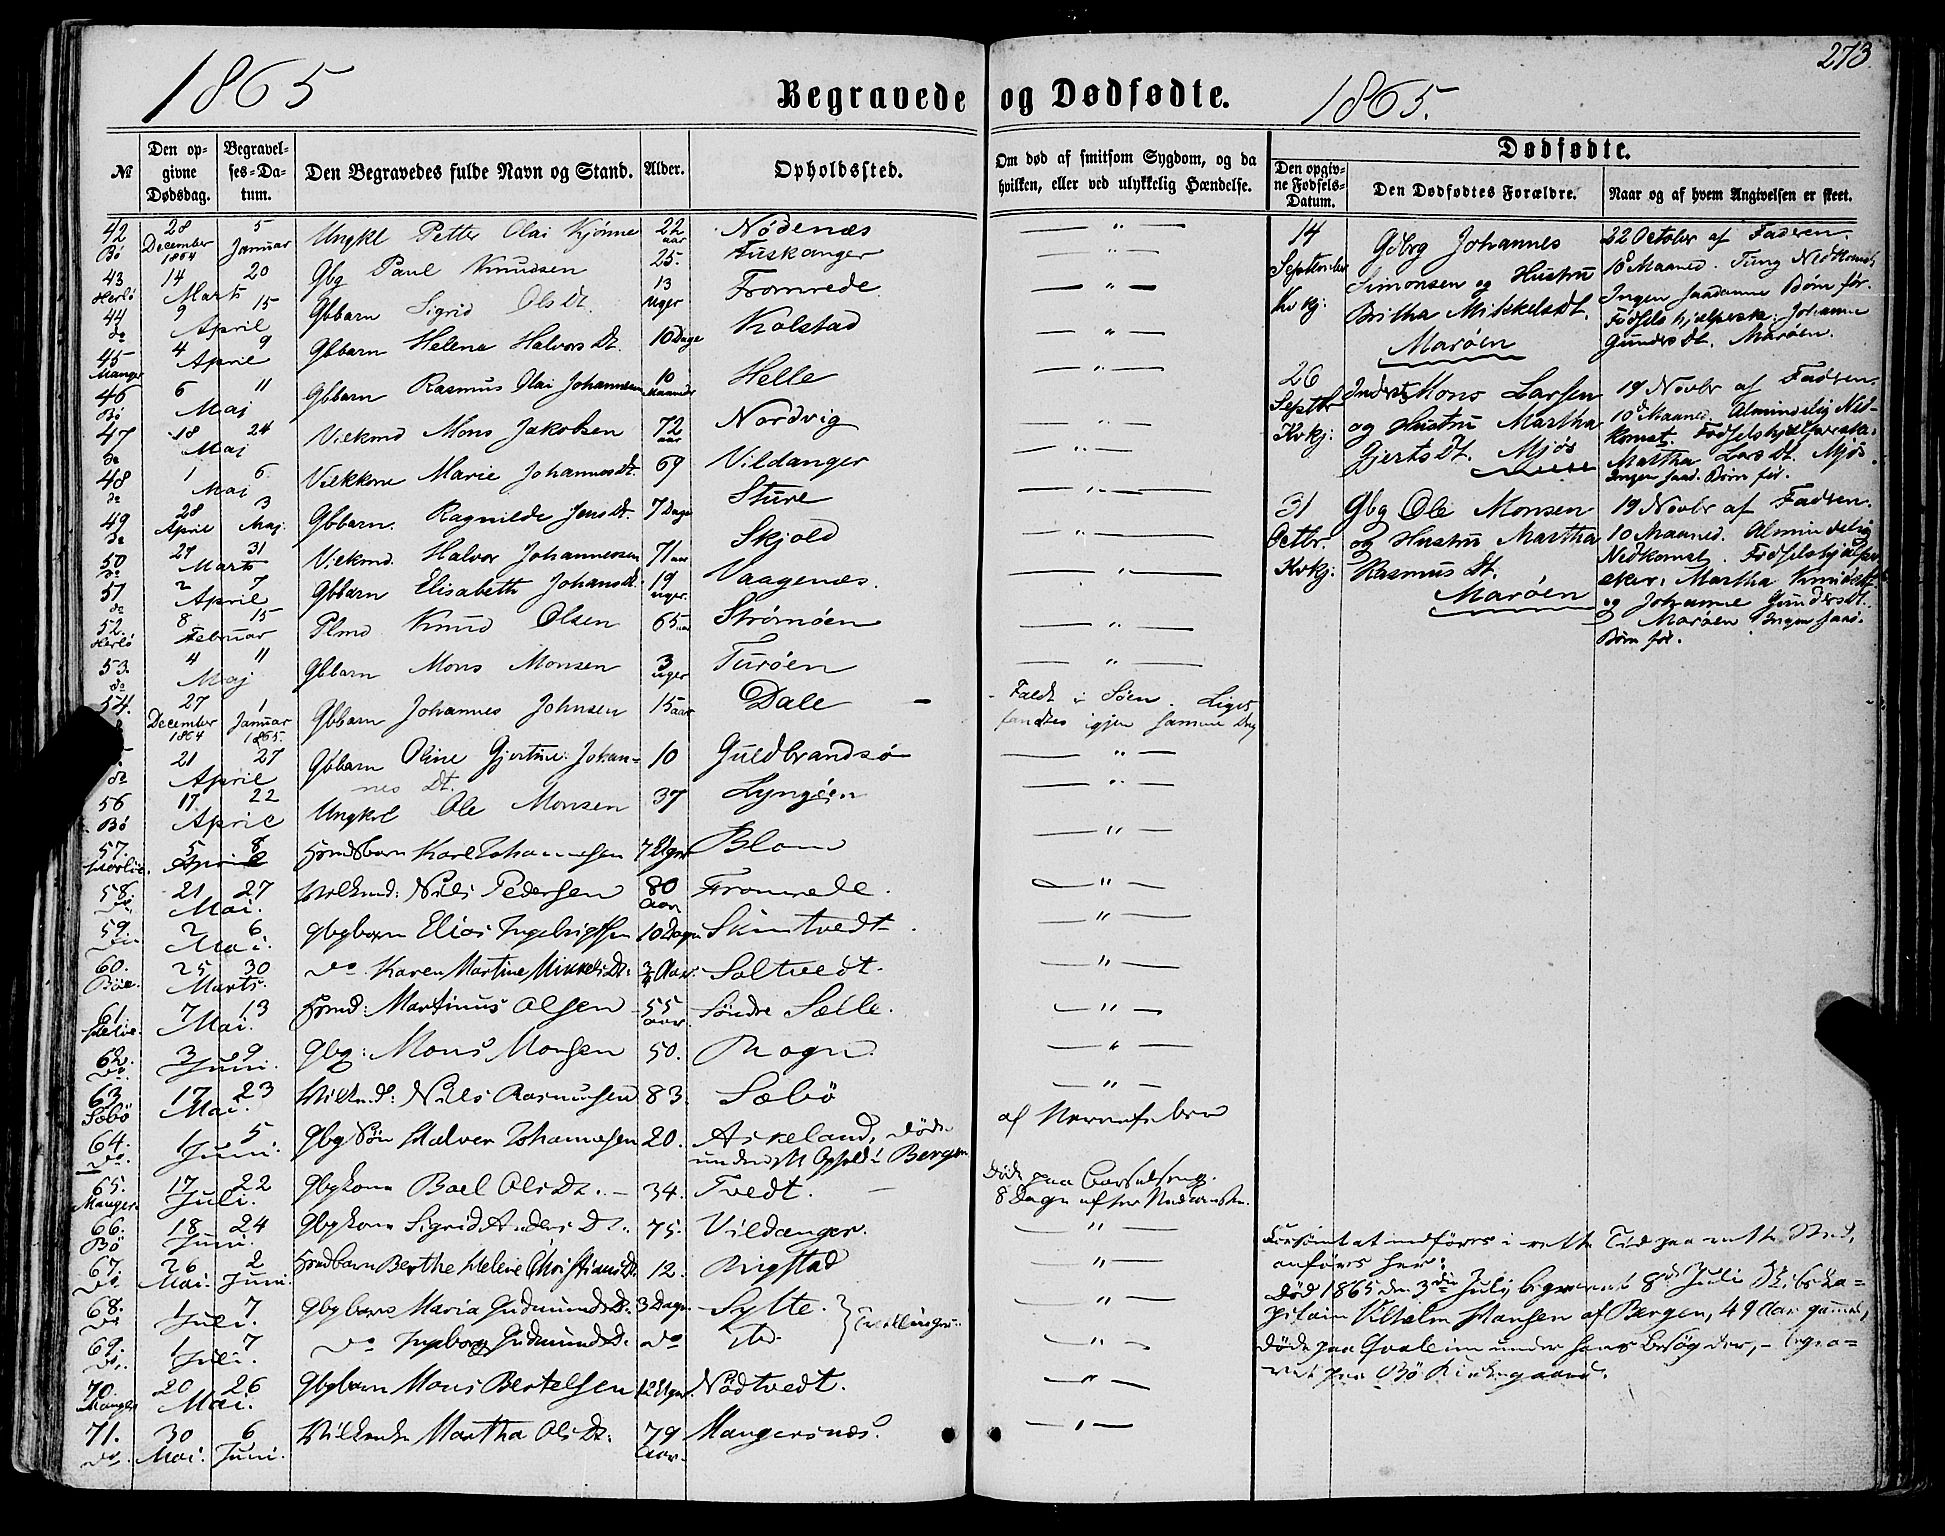 273.
1865 Begravede og Dødfødte. 1865.
№ | Den opgivne Dødsdag. | Begravelses-Datum. | Den Begravedes fulde Navn og Stand. | Alder. | Opholdssted. | Om død af smitsom Sygdom, og da hvilken, eller ved ulykkelig Hændelse.
42 Bö | 28 December 1864 | 5 Januar | Ungkl Petter Olai Kjönne | 22 aar | Nødenæs | — " —
43 Herlö | 14 Marts | 20 | Gbg Paul Knudsen | 25. | Tuskanger | — " —
44 do | 9 April | 15 | Gbbarn Sigrid Olsdt. | 13 Uger | Fromrede | — " —
45 Manger | 4 April | 9 | Gbbarn Helena Halvorsdt. | 10 Dage | Kolstad | — " —
46 Bö | 6 Maj | 11 | Gbbarn Rasmus Olai Johannesen | 10 Maaneder | Helle | — " —
47 do | 18 Maj | 24 | Vilkmd Mons Jakobsen | 72 aar | Nordvig | — " —
48 do | 1 Maj | 6 | Vilkkone Marie Johannesdt. | 69 | Vildanger | — " —
49 do | 28 April | 3 Maj. | Gbbarn Ragnilde Jonsdt. | 7 Dage | Sture | — " —
50 do | 27 Marts | 31 | Vilkmd Halvor Johannessen | 71 aar | Skjold | — " —
51 do | 2 April | 7 | Gbbarn Elisabeth Johansdt. | 19 uger. | Vaagenæs. | — " —
52. Herlö | 8 Februar | 15 | Plmd Knud Olsen | 65 aar | Strömöen | — " —
53. do | 4 Maj | 11 | Gbbarn Mons Monsen | 3 uger | Turöen | — " —
54. | 27 December 1864 | 1 Januar 1865. | Gbbarn Johannes Johnsen | 15 aar | Dale | Faldt i Söen. Liget fandtes igjen samme Dag
do | 21 April | 27 | Gbbarn Oline Gjertine Johannesdt. | 10 | Guldbrandsö | — " —
56 Bö | 17 April | 22 | Ungkrl Ole Monsen | 37 | Lyngöen | — " —
57. | 5 April | 8 | Hmdsbarn Karl Johannesen | 7 Uger | Blom | — " —
58. do | 21 Mai. | 27 | Vilkmd: Nils Pedersen | 80 Aar | Fromrede. | — " —
59. do | 2 Mai. | 6 | Gbgbarn Elias Ingebrigtsen | 10 Dage | Skintvedt | — " —
60. Böe. | 25 Marts. | 30 | do Karen Martine Mikkelsdt. | 3/4 Aar. | Soltvedt. | — " —
61. | 7 Mai. | 13 | Hmd: Martinus Olsen | 55 aar. | Söndre Sælle. | — " —
62. do | 3 Juni. | 9 | Gbg: Mons Monsen | 50. | Rogn. | — " —
63. Sæbö | 17 Mai. | 23 | Vilkmd: Nils Rasmussen | 83. | Sæbö | — " —
64. do | 1 Juni. | 5 | Gbg Sön Halvor Johannesen | 20. | Askeland, döde under et Ophold i Bergen | af Nervefeber
65. Manger | 17 Juli. | 22 | Gbgkone Boel Olsdt. | 34. | Tvedt. | Död paa Barselseng. 8 Dage efter Nedkomsten.
66. Bö | 18 Juni. | 24 | Gbgkone Sigrid Andersdt. | 75. | Vildanger. | — " —
67. do | 26 Mai. | 2 Juni. | Hmdbarn Berthe Helene Christiansdt. | 12. | Rigstad | — " —
68. do | 1 Juli. | 7 | Gbgbarn Maria Gudmundsdt. | 3 Dage | Sylte. } Tvillinger. | — " —
69. do. | 1 Juli. | 7 | do Ingborg Gudmundsdt. | do | Ibd. | — " —
70. Manger | 20 Mai. | 26 | Gbgbarn Mons Bertelsen | 12 Uger | Nödtvedt. | — " —
71. do. | 30 Mai. | 6 Juni. | Vilkenke Martha Olsdt. | 79 Aar. | Mangersnæs. | — " —
Dødfødte.
Den opgivne Fødsels-Datum. | Den Dødfødtes Forældre. | Naar og af hvem Angivelsen er skeet.
14 September Kvkj: | Gdbrg Johannes Simonsen og Hustru Britha Mikkelsdt. Maröen | 22 October af Faderen 10 Maaned. Tung Nedkomst Ingen saadanne Børn før. Fødselshjælperske: Johanne Gundersdt. Maröen.
26 Septbr Kvkj: | Inderst Mons Larsen og Hustru Martha Gjertsdt. Mjös | 19 Novbr af Faderen. 10de Maaned. Almindelig Nedkomst. Fødselshjælperske. Martha Larsdt. Mjös. Ingen saad. Børn før.
31 Octbr. Kvkj: | Gbg Ole Monsen og Hustru Martha Rasmusdt. Maröen | 19 Novbr af Faderen. 10 Maaned. Almindelig Nedkomst. Fødselshjælpersker: Martha Knudsdt og Johanne Gundersdt. Maröen Ingen saad. Børn før.
Forsömt at indföres i rette Tid paa rette Sted,
anföres her:
Död 1865 den 3die Juli, begravet 8de Juli Skibska-
pitain Vilhelm Hansen af Bergen, 49 Aar gammel,
döde paa Qvalen under hans Besög der, – begra-
vet paa Bö Kirkegaard.